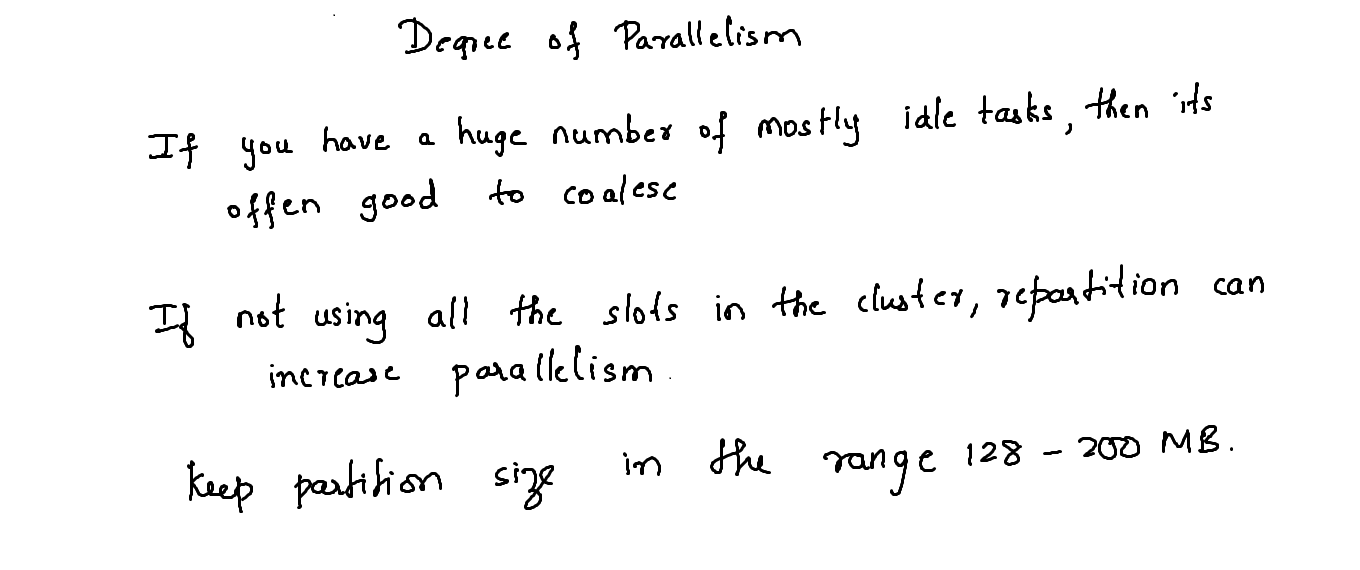 Degree of Parallelism
If you have a huge number of mostly idle tasks, then its
offen good to coalesc
If not using all the slots in the cluster, repartition can
increase parallelism.
keep partition size in the range 128 - 200 MB.